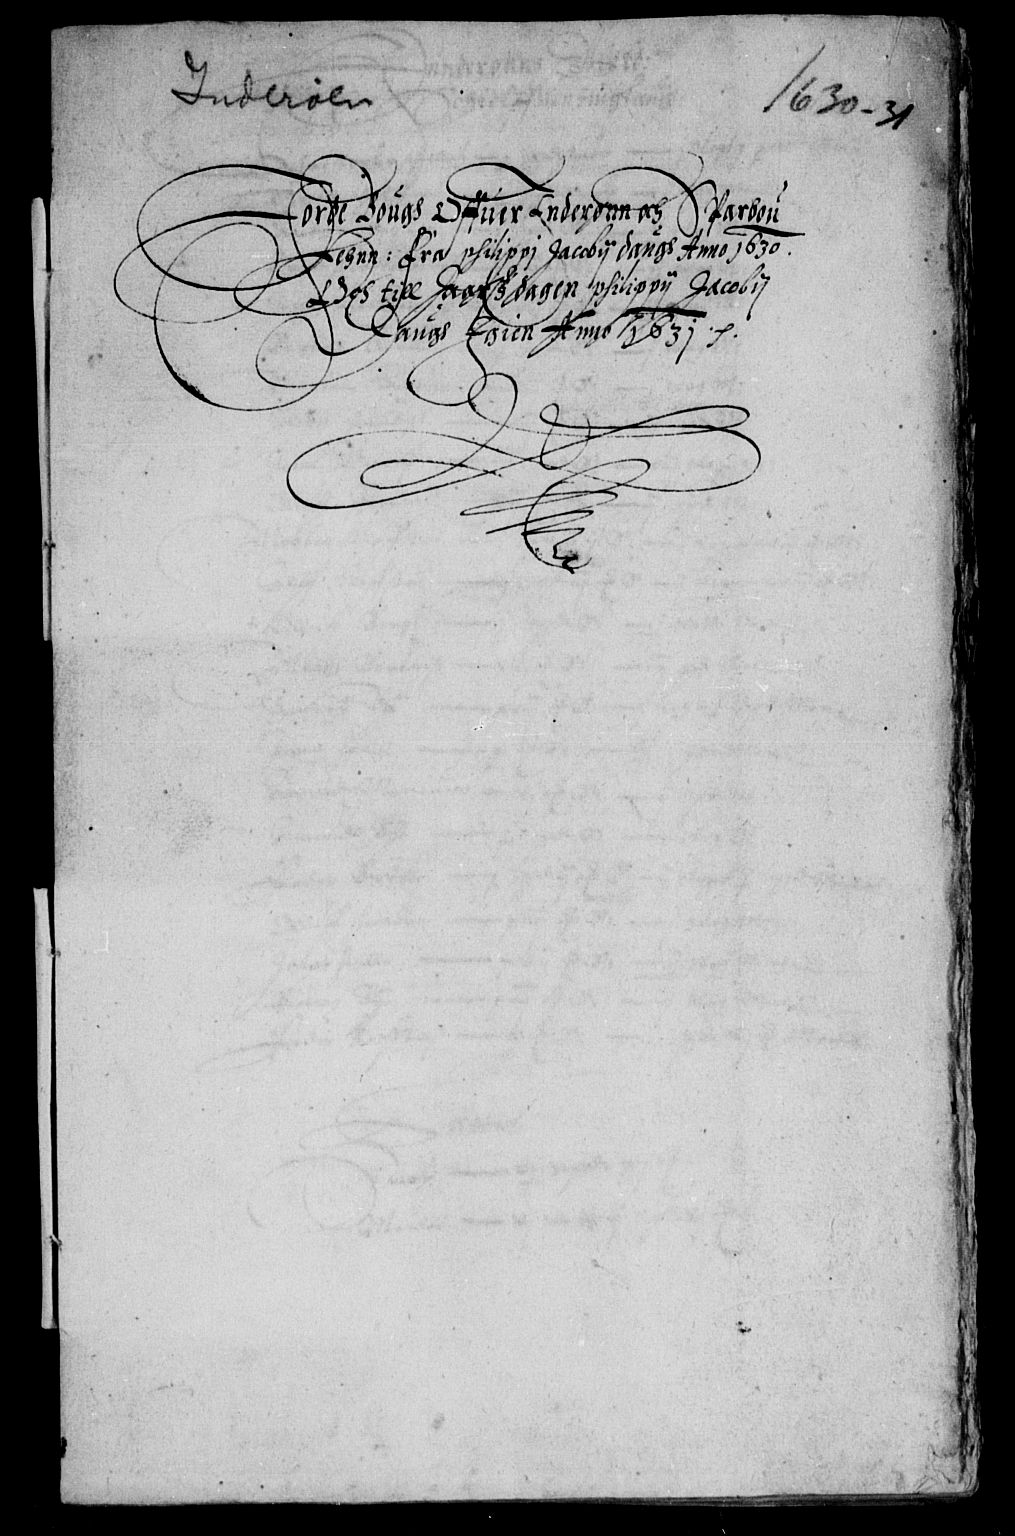 Inderøen
1630-31
Jorde Bougs Offuer Enderønn och Sparbou
Lehnn: Fra philippj Jacobij daugs Anno 1630.
Och till Aars dagen philippij Jacobij
Daugs Igien Anno 1631